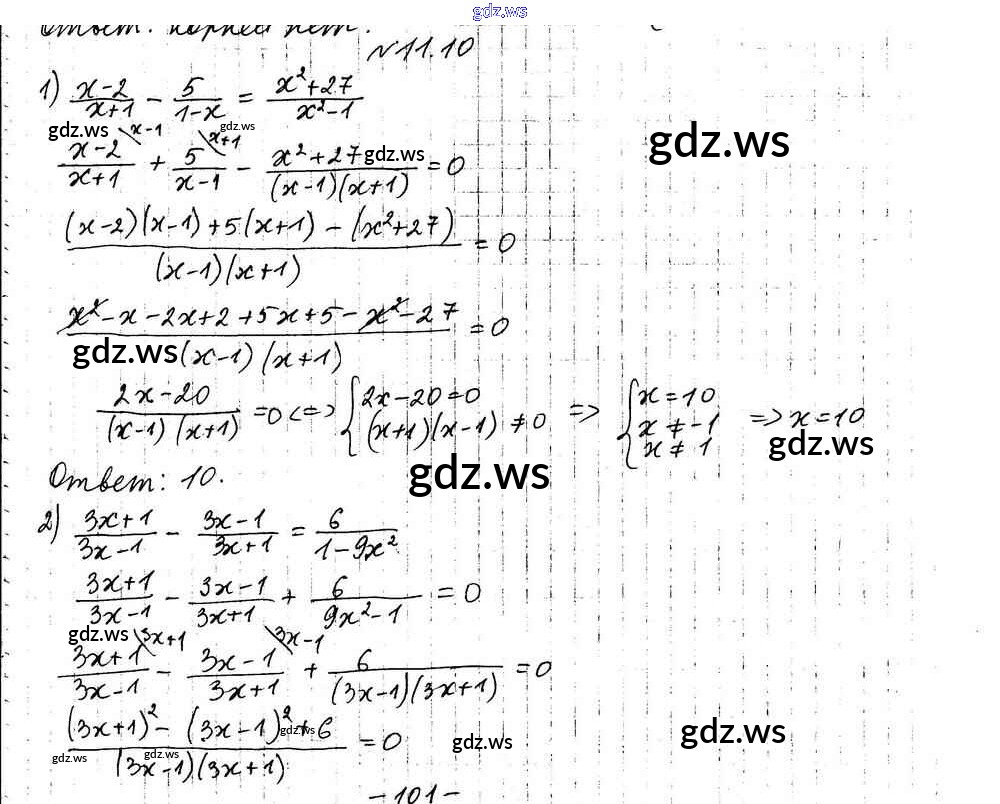 gdz.ws
Ответ: корней нет.
№11.10
1) (x-2)/(x+1) - 5/(1-x) = (x²+27)/(x²-1)
gdz.ws x-1 gdz.ws x+1 gdz.ws
(x-2)/(x+1) + 5/(x-1) - (x²+27)/((x-1)(x+1)) = 0 gdz.ws
((x-2)(x-1)+5(x+1)-(x²+27))/((x-1)(x+1)) = 0
(x²-x-2x+2+5x+5-x²-27)/((x-1)(x+1)) = 0
gdz.ws
(2x-20)/((x-1)(x+1)) =0 <=> { 2x-20=0 (x+1)(x-1) ≠ 0 => { x=10 x ≠ -1 x ≠ 1 => x=10
gdz.ws
Ответ: 10. gdz.ws
2) (3x+1)/(3x-1) - (3x-1)/(3x+1) = 6/(1-9x²)
(3x+1)/(3x-1) - (3x-1)/(3x+1) + 6/(9x²-1) = 0
gdz.ws 3x+1 3x-1
(3x+1)/(3x-1) - (3x-1)/(3x+1) + 6/((3x-1)(3x+1)) = 0
((3x+1)² - (3x-1)²+6)/((3x-1)(3x+1)) = 0
gdz.ws gdz.ws gdz.ws gdz.ws gdz.ws
-101-